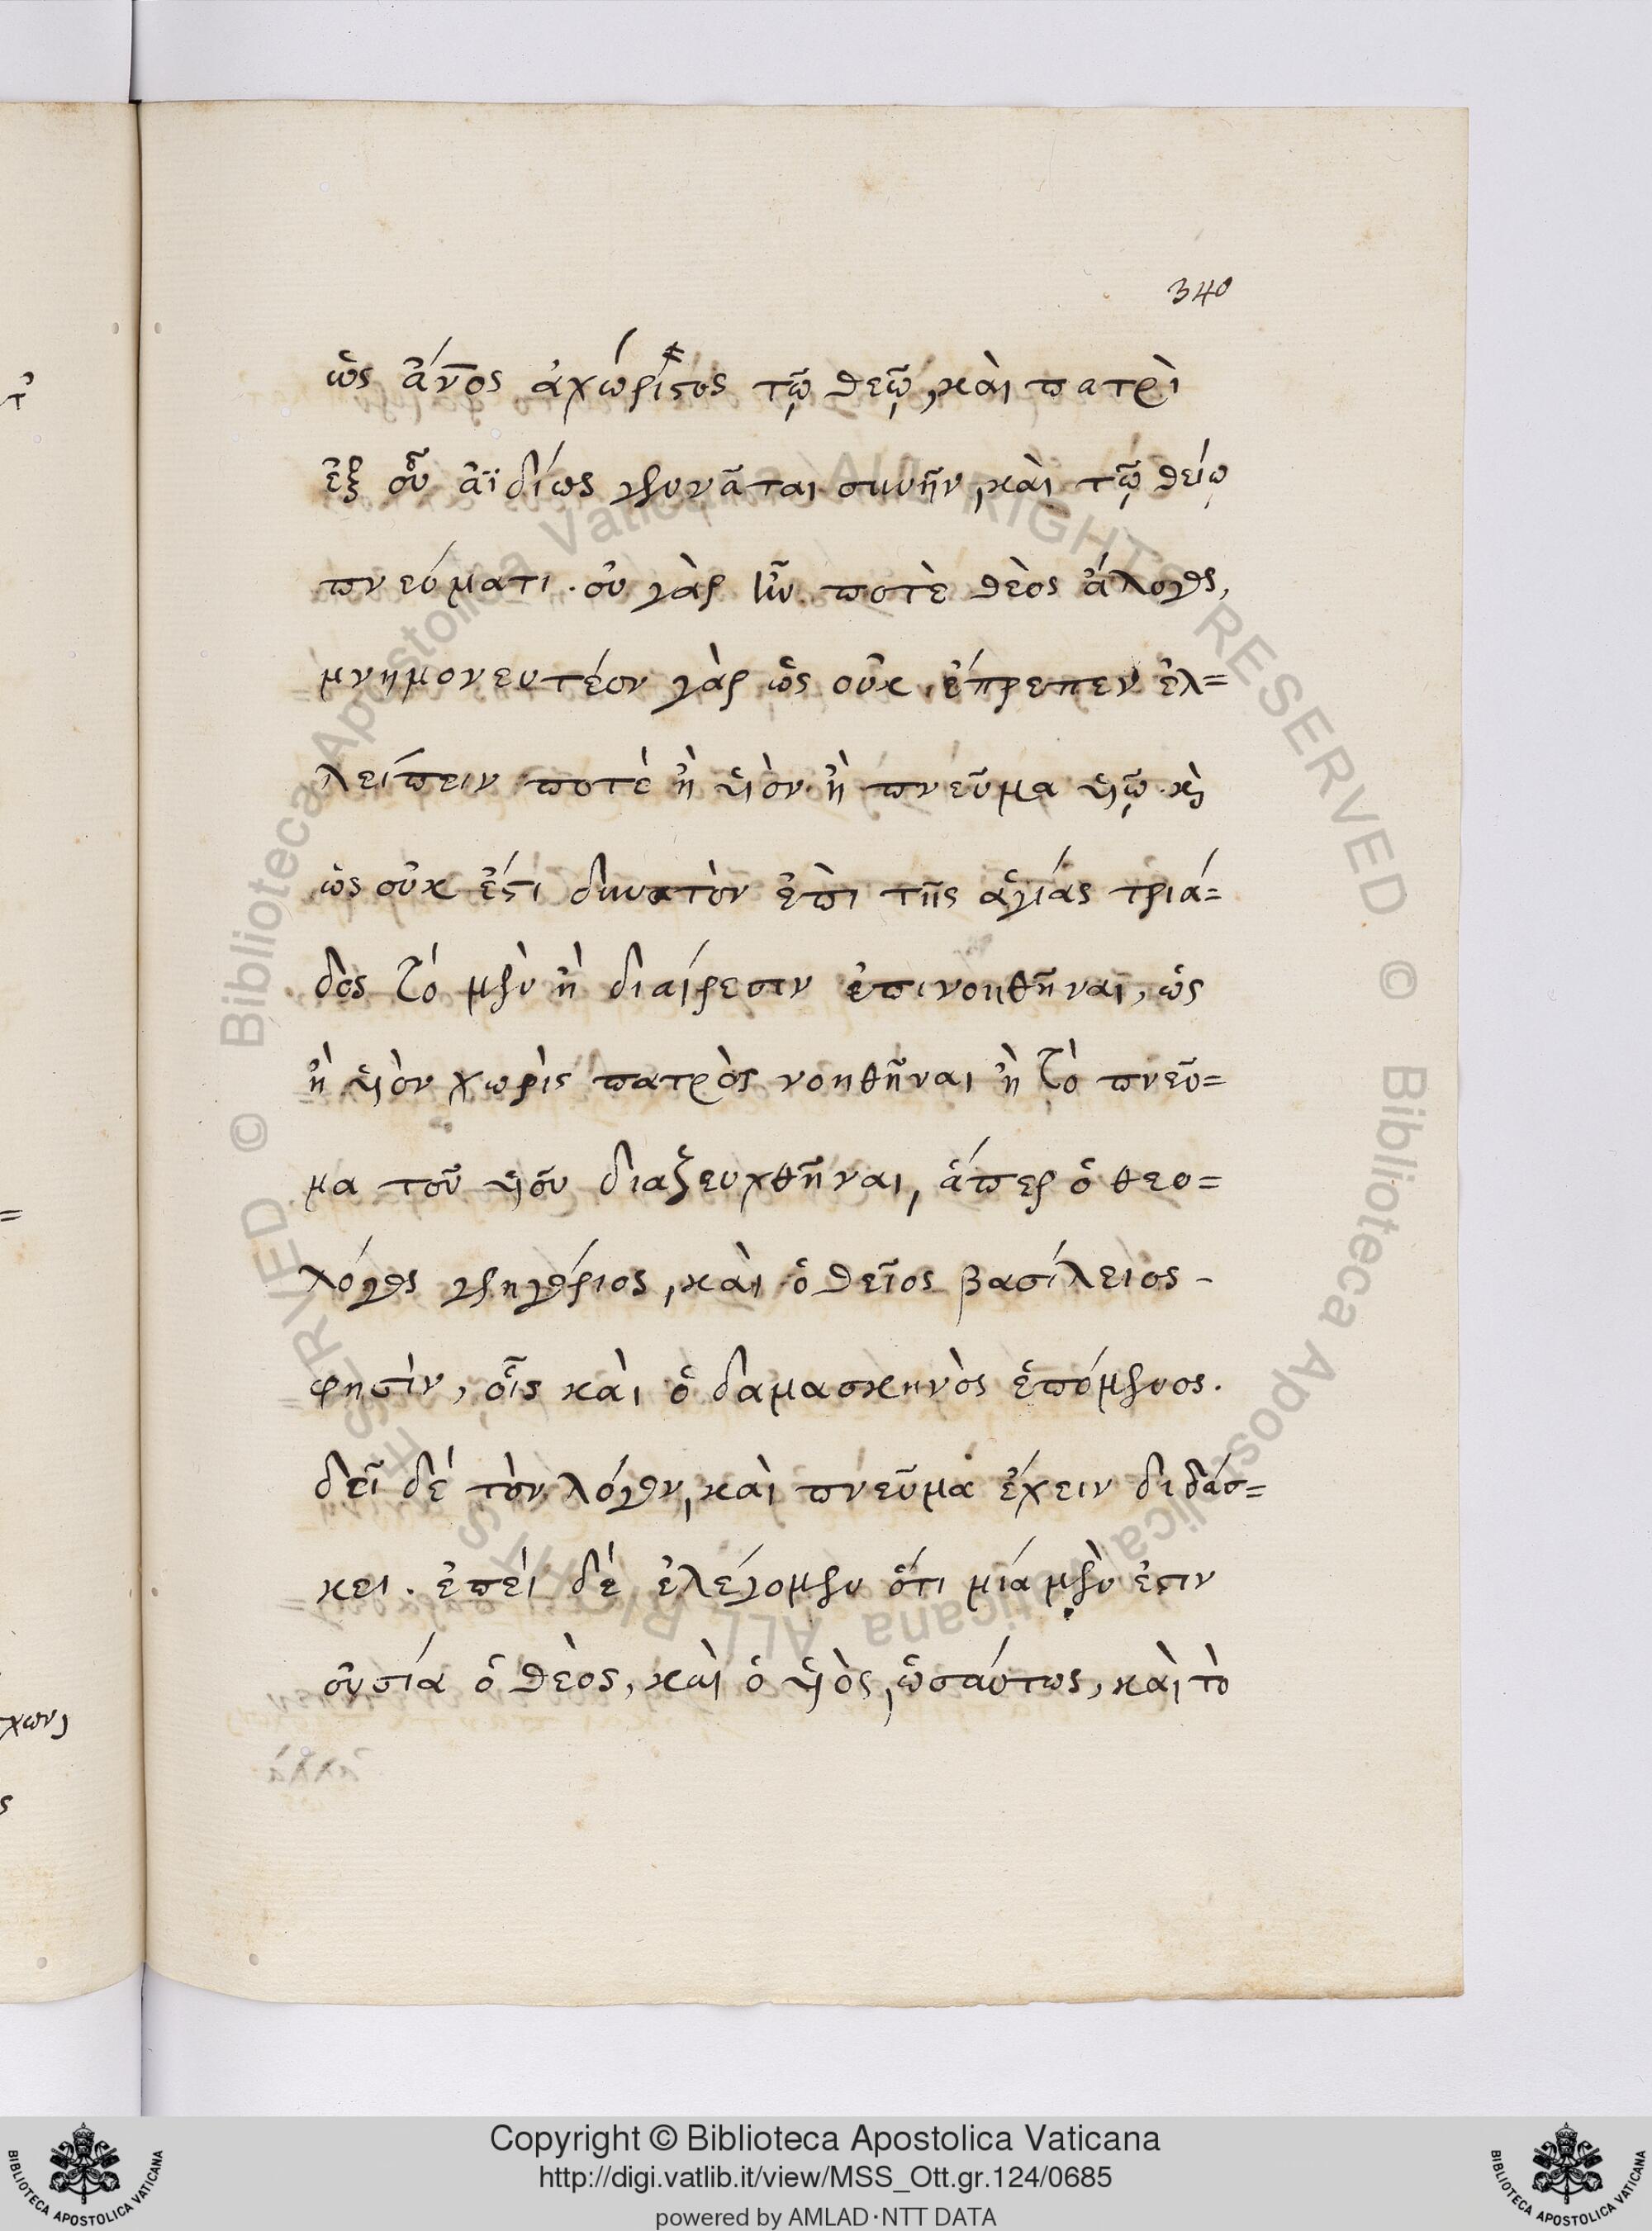 340
ὡς ἄνος ἀχώριστος τῷ θεῷ, καὶ πατρὶ
ἐξ οὗ ἀϊδίως γεννᾶται συνῆν, καὶ τῷ θείῳ
πνεύματι. οὐ γὰρ ἦν ποτὲ θεὸς ἄλογος,
μνημονευτέον γὰρ ὡς οὐκ ἔπρεπεν ἐλ=
λείπειν ποτὲ ἢ υἱὸν ἢ πνεῦμα υἱῷ. κὶ
ὡς οὐκ ἔστι δυνατὸν ἐπὶ τῆς ἁγίας τριά=
δος τὸ μὲν ἢ διαίρεσιν ἐπινοηθῆναι, ὡς
ἢ υἱὸν χωρὶς πατρὸς νοηθῆναι ἢ τὸ πνεῦ=
μα τοῦ υἱοῦ διαζευχθῆναι, ἅπερ ὁ θεο=
λόγος γρηγόριος, καὶ ὁ θεῖος βασίλειος -
φησὶν, οἷς καὶ ὁ δαμασκηνὸς ἑπόμενος.
δεῖ δὲ τὸν λόγον, καὶ πνεῦμα ἔχειν διδάσ=
κει. ἐπεὶ δὲ ἐλέγομεν ὅτι μία μὲν ἐστιν
οὐσία ὁ θεὸς, καὶ ὁ υἱὸς, ὡσαύτως, καὶ τὸ
© Biblioteca Apostolica Vaticana ALL RIGHTS RESERVED © Biblioteca Apostolica Vaticana ALL RIGHTS RESERVED
BIBLIOTECA APOSTOLICA VATICANA
Copyright © Biblioteca Apostolica Vaticana
http://digi.vatlib.it/view/MSS_Ott.gr.124/0685
powered by AMLAD·NTT DATA
BIBLIOTECA APOSTOLICA VATICANA